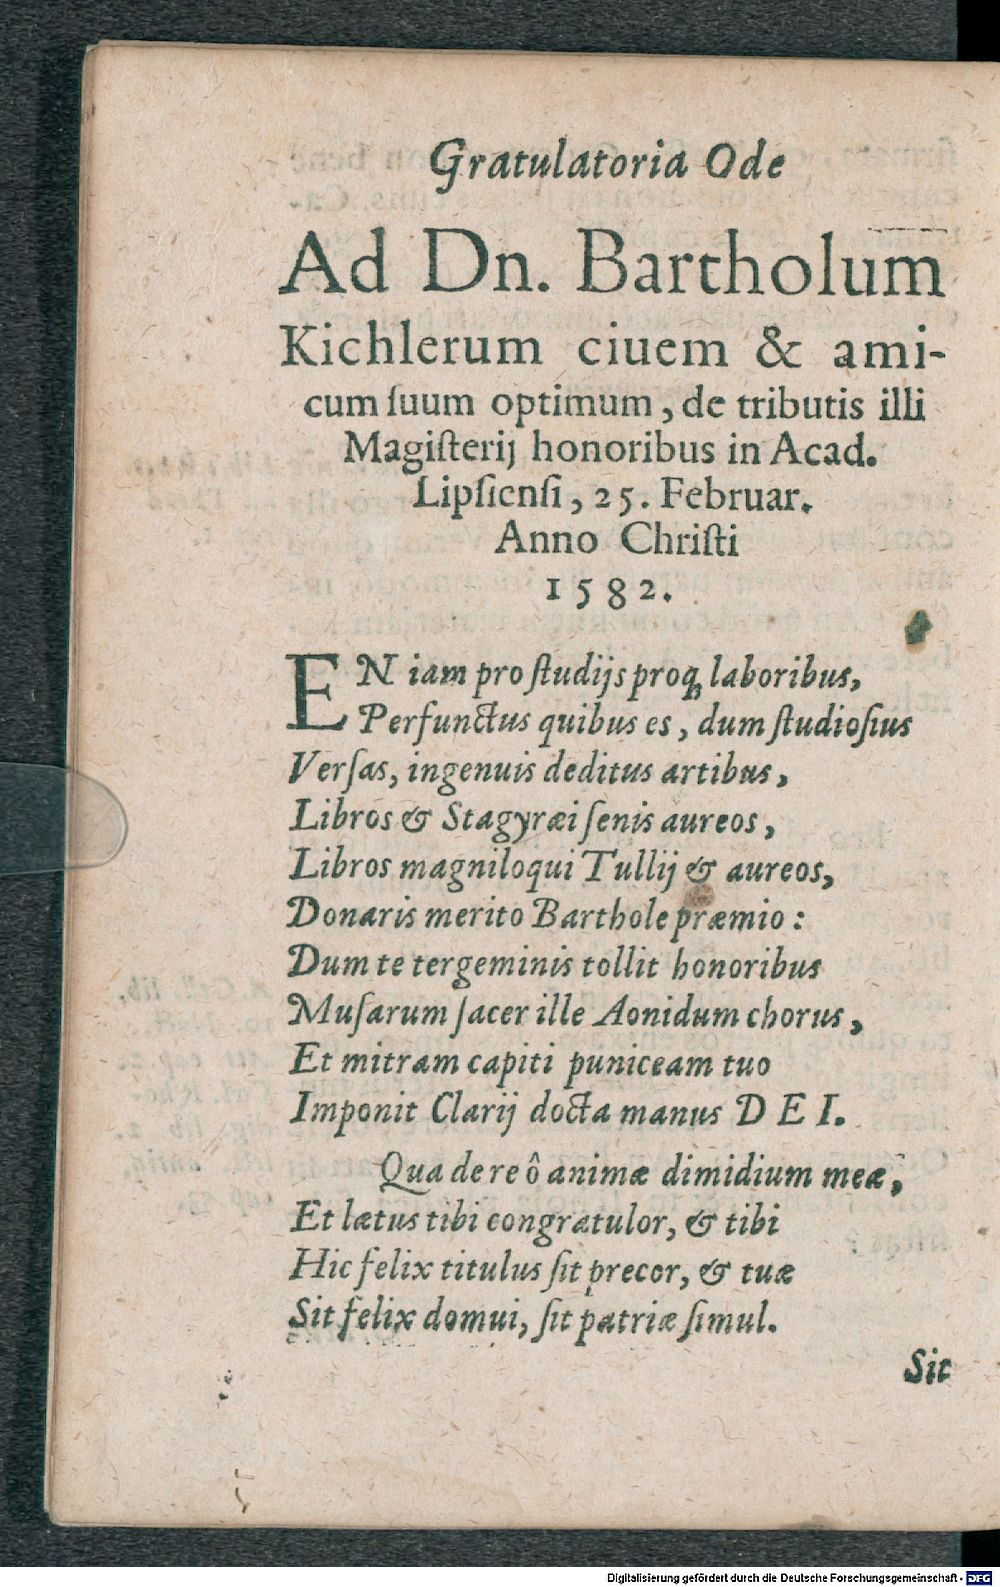 Gratulatoria Ode
Ad Dn. Bartholum
Kichlerum ciuem & ami-
cum ſuum optimum, de tributis illi
Magiſterij honoribus in Acad.
Lipſienſi, 25. Februar.
Anno Chriſti
1582.
EN iam pro ſtudijs proq́; laboribus,
Perfunctus quibus es, dum ſtudioſius
Verſas, ingenuis deditus artibus,
Libros & Stagyræi ſenis aureos,
Libros magniloqui Tullij & aureos,
Donaris merito Barthole præmio:
Dum te tergeminis tollit honoribus
Muſarum ſacer ille Aonidum chorus,
Et mitram capiti puniceam tuo
Imponit Clarij docta manus DEI.
Qua de re ô animæ dimidium meæ,
Et lætus tibi congratulor, & tibi
Hic felix titulus ſit precor, & tuæ
Sit felix domui, ſit patriæ ſimul.
Sit
Digitalisierung gefördert durch die Deutsche Forschungsgemeinschaft - DFG